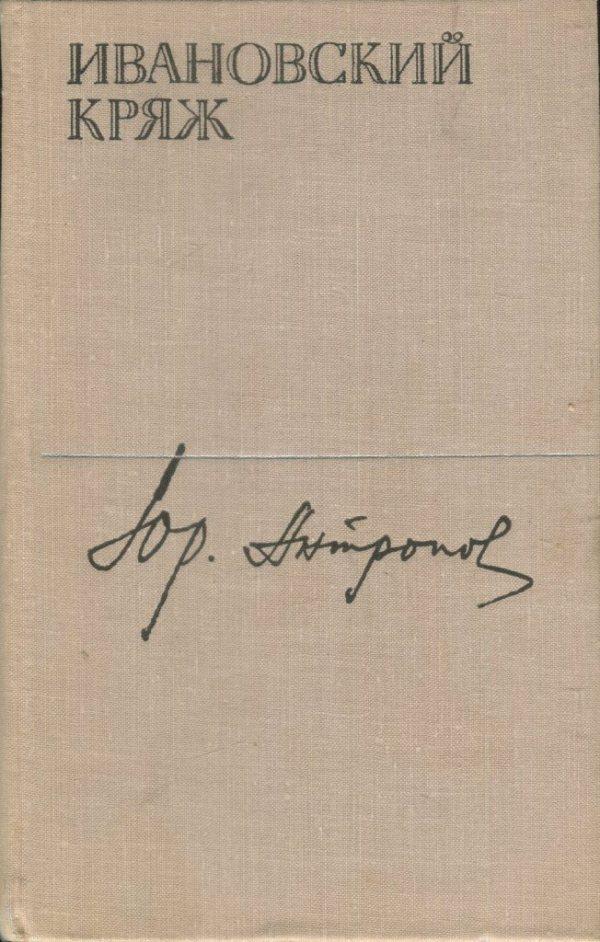 ИВАНОВСКИЙ
КРЯЖ
Юр. Антропов